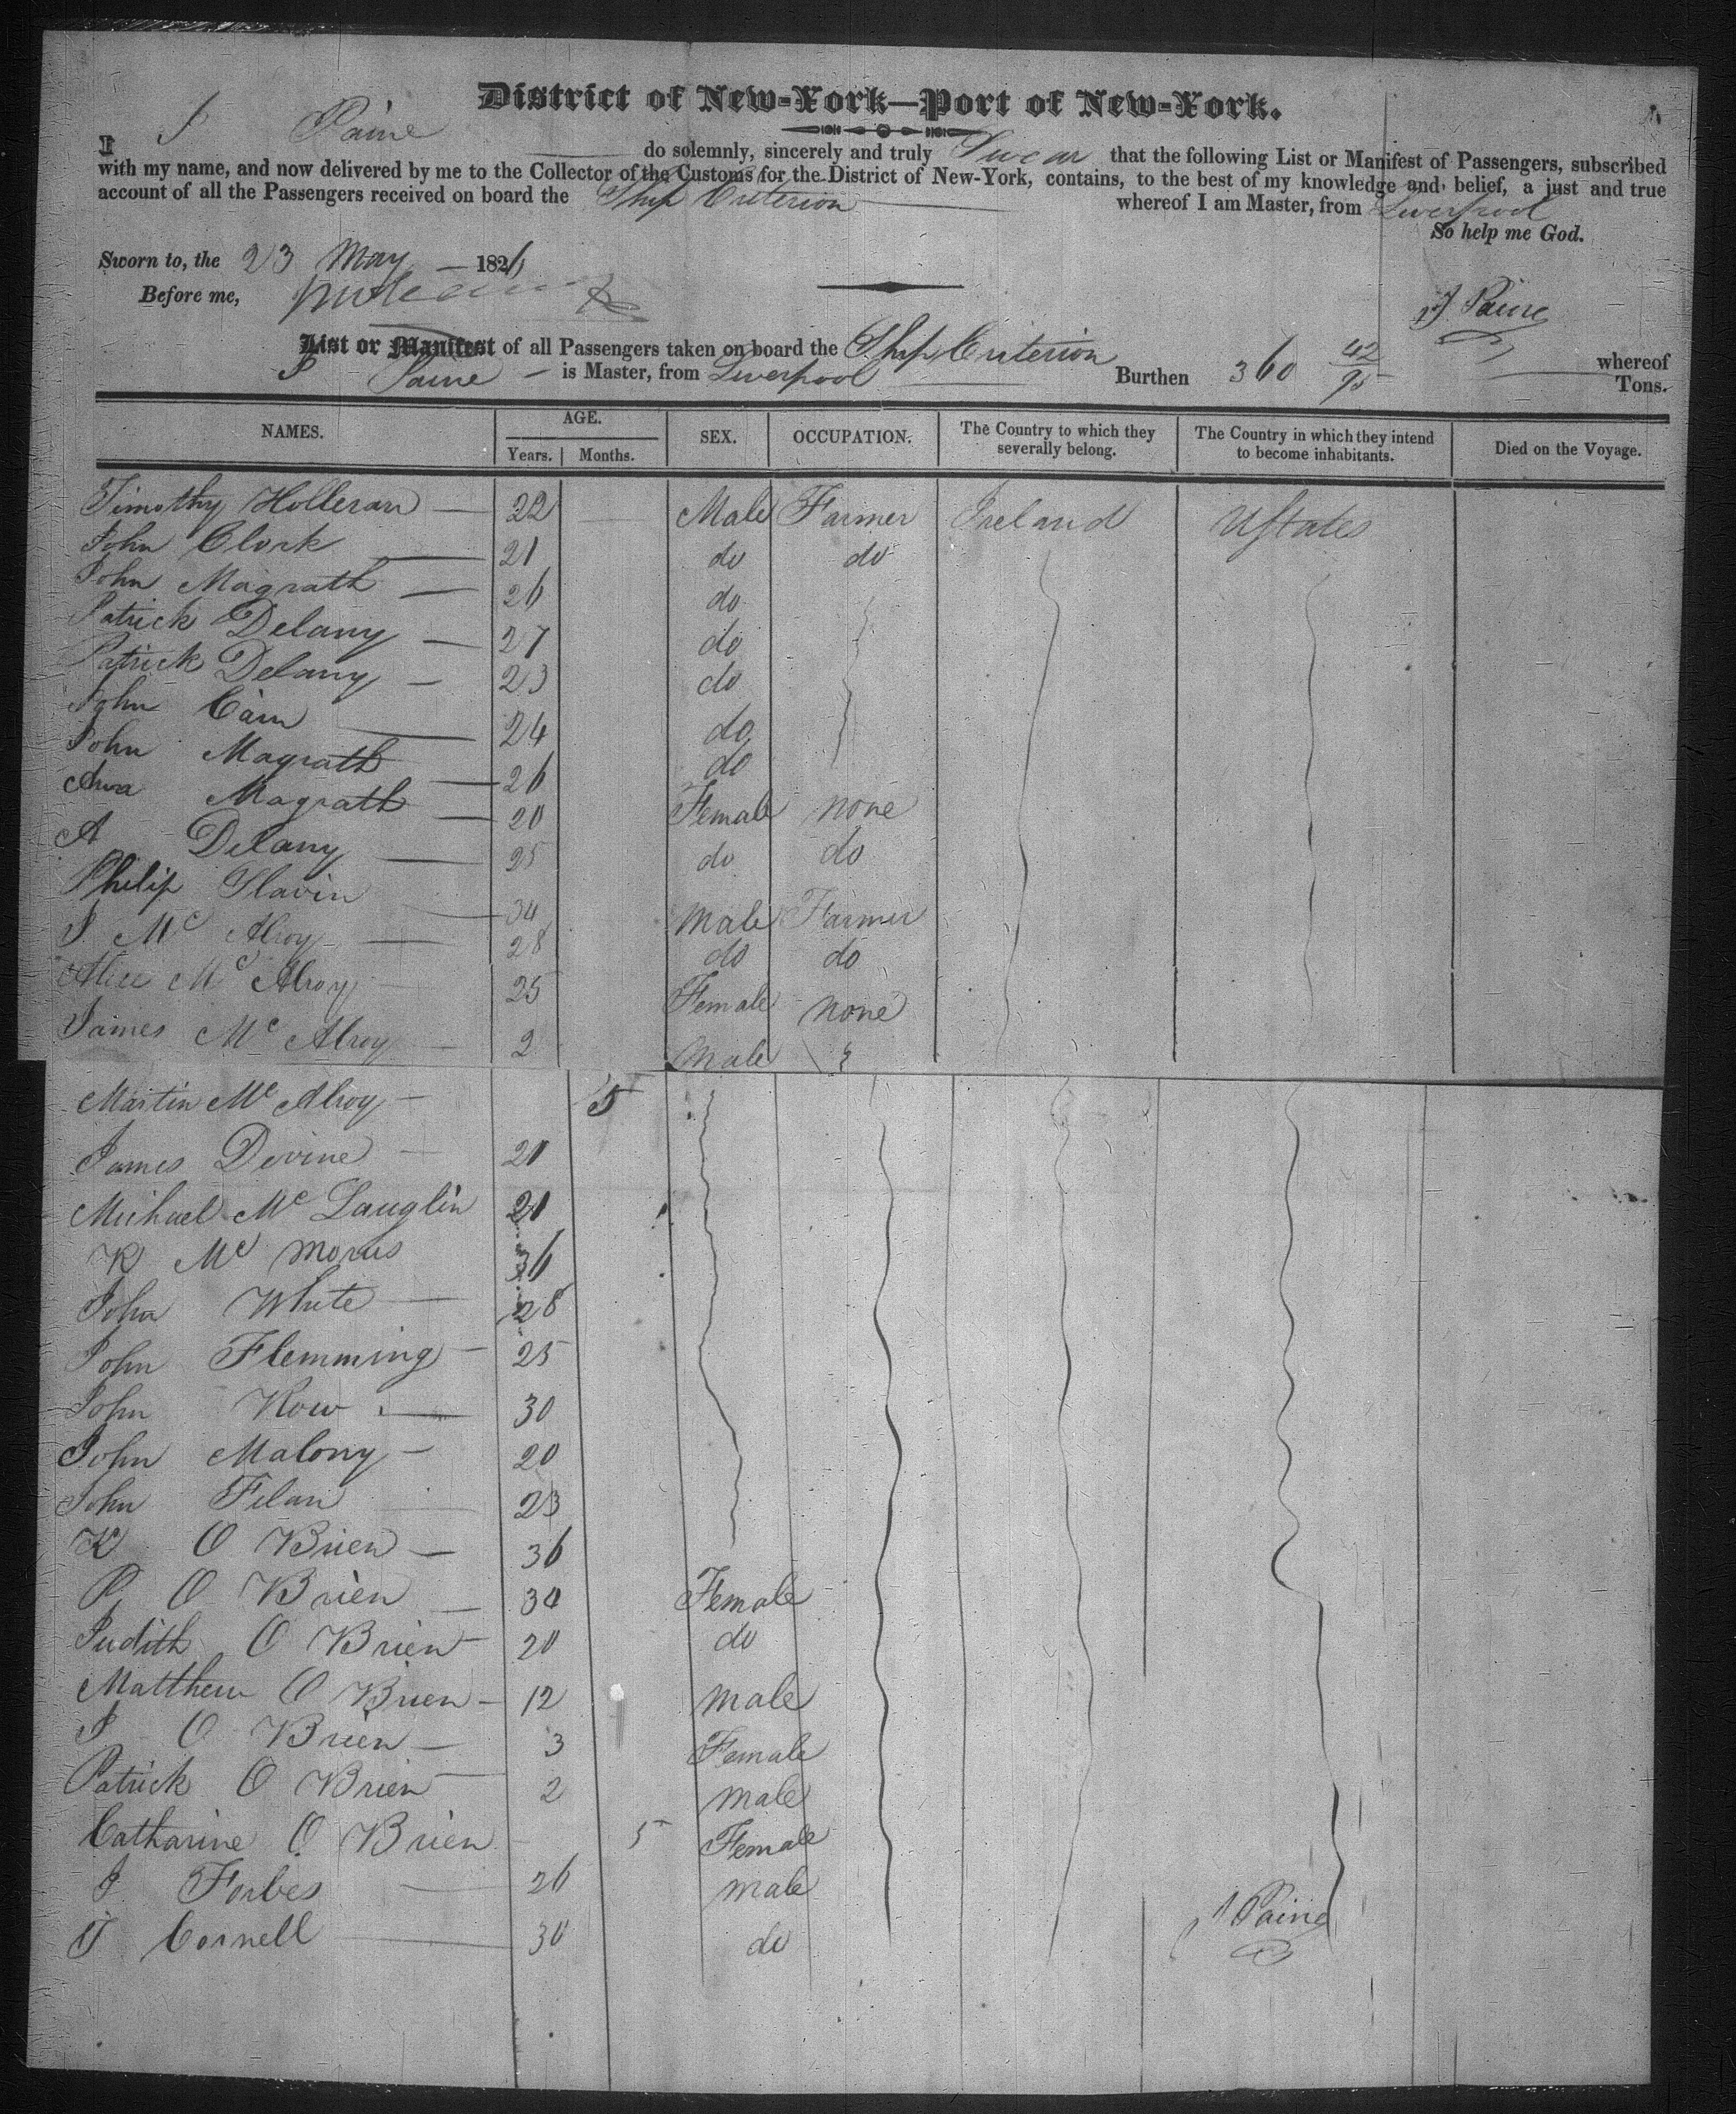 District of New-York—Port of New-York.
I J Paine do solemnly, sincerely and truly Swear that the following List or Manifest of Passengers, subscribed
with my name, and now delivered by me to the Collector of the Customs for the District of New-York, contains, to the best of my knowledge and belief, a just and true
account of all the Passengers received on board the Ship Criterion whereof I am Master, from Liverpool
So help me God.
Sworn to, the 23 May 1826
Before me,
J Paine
List or Manifest of all Passengers taken on board the Ship Criterion whereof
J Paine is Master, from Liverpool Burthen 360 42/95 Tons.
NAMES. AGE. Years. Months. SEX. OCCUPATION. The Country to which they severally belong. The Country in which they intend to become inhabitants. Died on the Voyage.
Timothy Holleran 22 Male Farmer Ireland UStates
John Clork 21 do do
John Magrath 26 do
Patrick Delany 27 do
Patrick Delany 23 do
John Cain 24 do
John Magrath 26 do
Magrath 20 Female none
A Delany 25 do do
Philip Slavin 34 Male Farmer
J. Mc Alroy 28 do do
Alice Mc Alroy 25 Female none
James Mc Alroy 2 Male
Martin Mc Alroy 5
James Devine 21
Michael Mc Lauglin 21
K Mc Morris 36
John White 28
John Flemming 25
John Row 30
John Malony 20
John Filan 23
K O Brien 36
P O Brien 30 Female
Judith O Brien 20 do
Matthew O Brien 12 male
J O Brien 3 Female
Patrick O Brien 2 male
Catharine O Brien 5 Female
J Forbes 26 male
J Cornell 30 do
J Paine